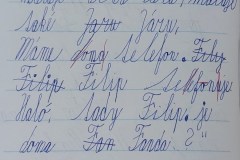 také Jaru Járu.
Máme doma telefon. Filip
Filip Filip telefonuje
Haló, tady Filip. je
doma Fan Fanda?"